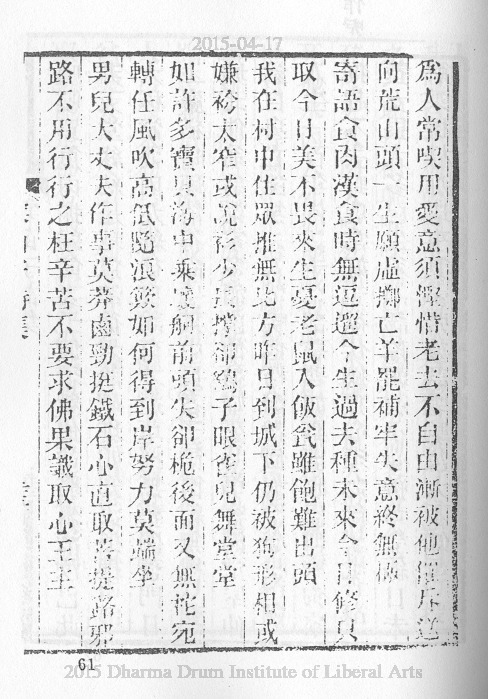 2015-04-17
為人常喫用愛意須慳惜老去不自由漸被他催斥送
向荒山頭一生願虛擲亡羊罷補牢失意終無極
寄語食肉漢食時無逗遛今生過去種未來今日修只
取今日美不畏來生憂老鼠入飯瓮雖飽難出頭
我在村中住眾推無比方昨日到城下仍被狗形相或
嫌袴太窄或說衫少長攣卻鷂子眼雀兒舞堂堂
如許多寶貝海中乘壞舸前頭失卻桅後面又無柁宛
轉任風吹高低隨浪簸如何得到岸努力莫端坐
男兒大丈夫作事莫莽鹵勁挺鐵石心直取菩提路邪
路不用行行之枉辛苦不要求佛果識取心王主
61
2015 Dharma Drum Institute of Liberal Arts